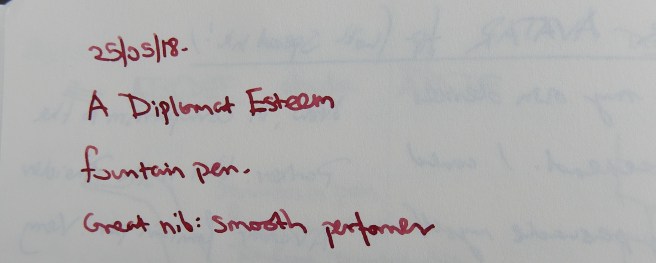 25/05/18.
A Diplomat Esteem
fountain pen.
Great nib: smooth perfomer